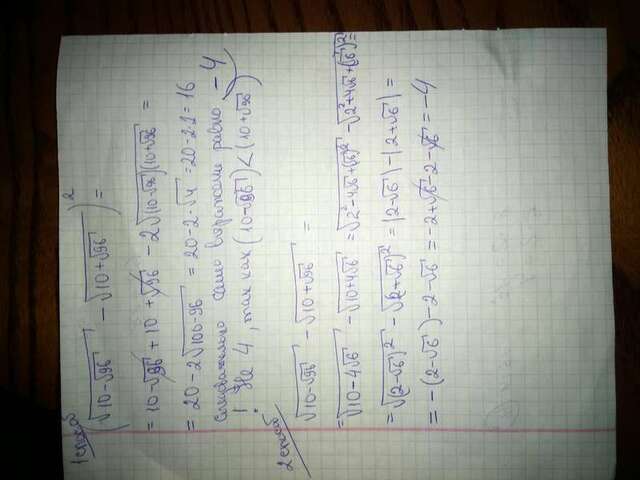 1 способ
(√(10-√96) - √(10+√96))² =
= 10-√96 + 10 + √96 - 2√(10-√96)(10+√96) =
= 20-2√(100-96) = 20-2·√4 = 20-2·2 = 16
следовательно само выражение равно -4
! Не 4, так как (10-√96) < (10+√96)
2 способ
√(10-√96) - √(10+√96) =
= √(10-4√6) - √(10+4√6) = √(2²-4√6+(√6)²) - √(2²+4√6+(√6)²) =
= √(2-√6)² - √(2+√6)² = |2-√6| - |2+√6| =
= -(2-√6)-2-√6 = -2+√6-2-√6 = -4